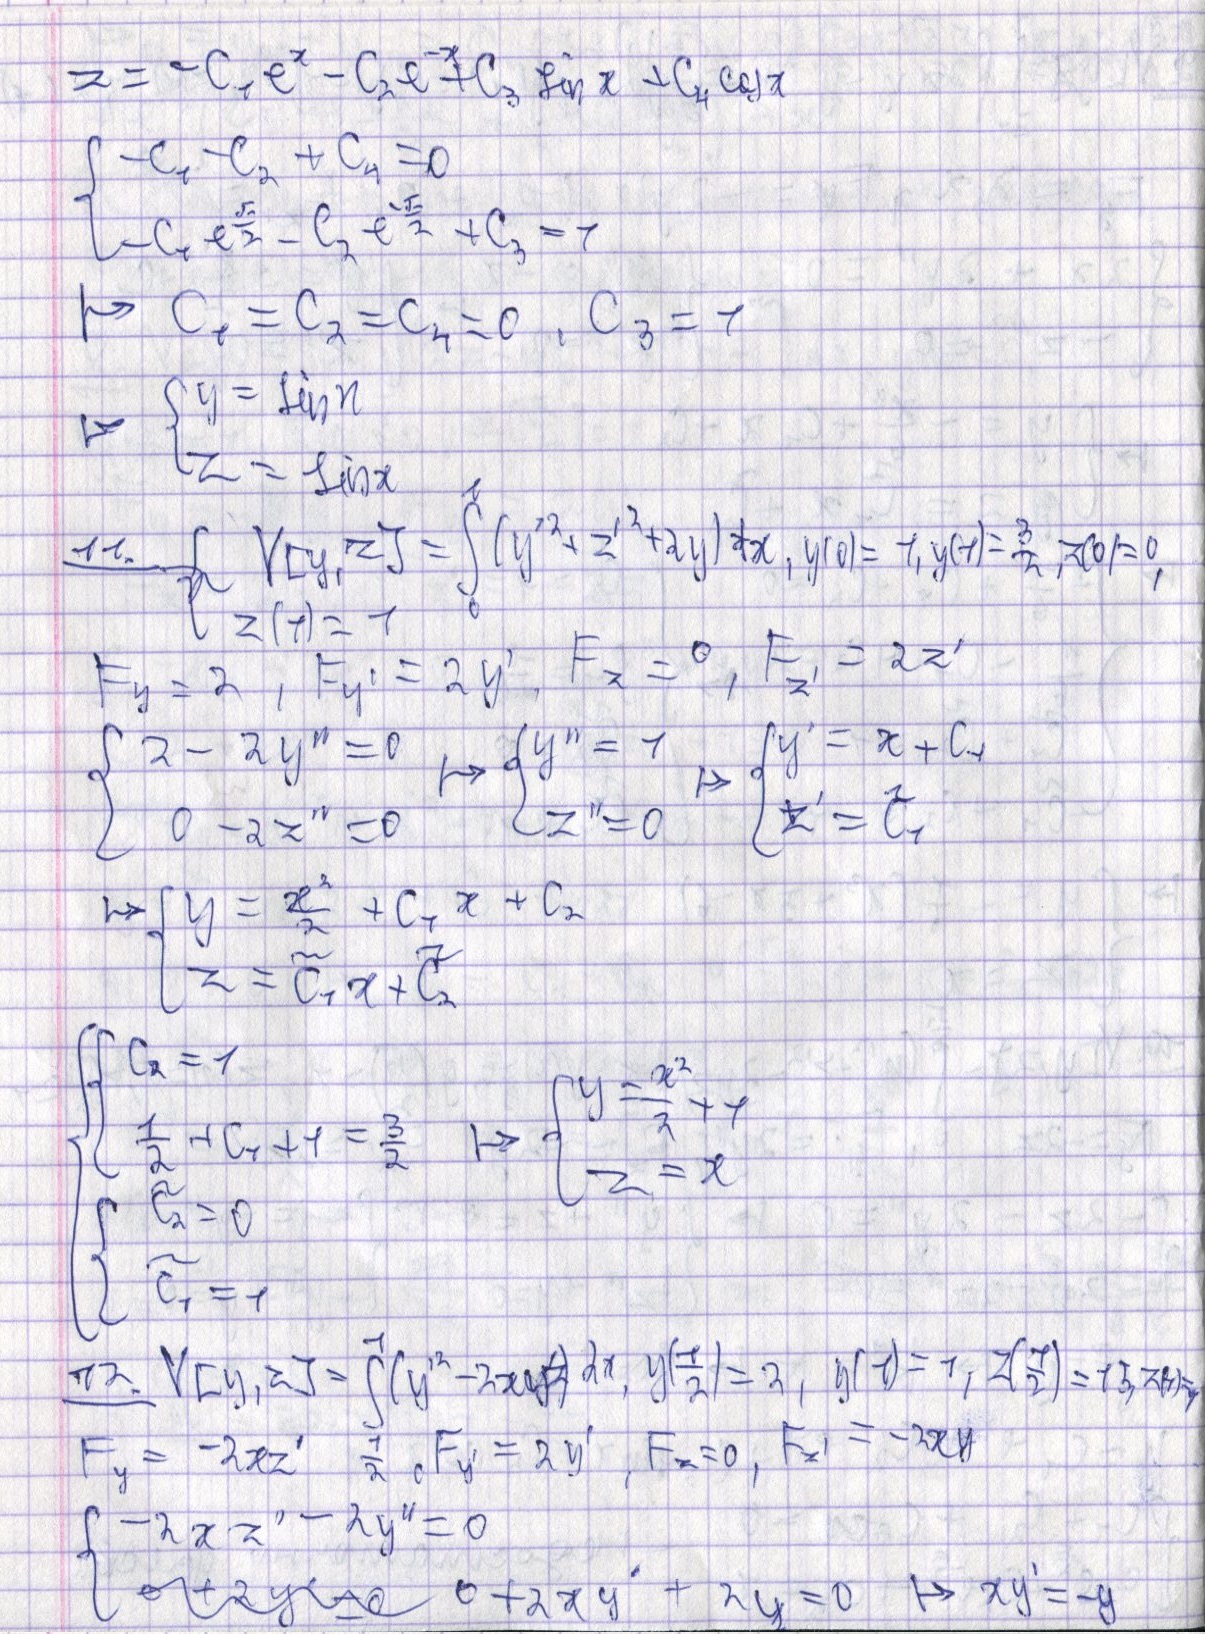 z = -C₁eˣ - C₂e⁻ˣ + C₃ sin x + C₄ cos x
{ -C₁ - C₂ + C₄ = 0
-C₁e^(π/2) - C₂e^(-π/2) + C₃ = 1
↦ C₁ = C₂ = C₄ = 0, C₃ = 1
↦ { y = sin x
z = sin x
11. { V[y, z] = ∫₀¹ (y'² + z'² + 2y) dx, y(0) = 1, y(1) = 3/2, z(0) = 0,
z(1) = 1
F_y = 2, F_y' = 2y', F_z = 0, F_z' = 2z'
{ 2 - 2y'' = 0 ↦ { y'' = 1 ↦ { y' = x + C₁
0 - 2z'' = 0 z'' = 0 z' = C̃₁
↦ { y = x²/2 + C₁x + C₂
z = C̃₁x + C̃₂
{ { C₂ = 1
1/2 + C₁ + 1 = 3/2 ↦ { y = x²/2 + 1
z = x
{ C̃₂ = 0
C̃₁ = 1
12. V[y, z] = ∫_(1/2)^1 (y'² - 2xyz') dx, y(1/2) = 2, y(1) = 1, z(1/2) = 15, z(1) = 1
F_y = -2xz', F_y' = 2y', F_z = 0, F_z' = -2xy
{ -2xz' - 2y'' = 0
0 + 2xy' + 2y = 0 ↦ xy' = -y